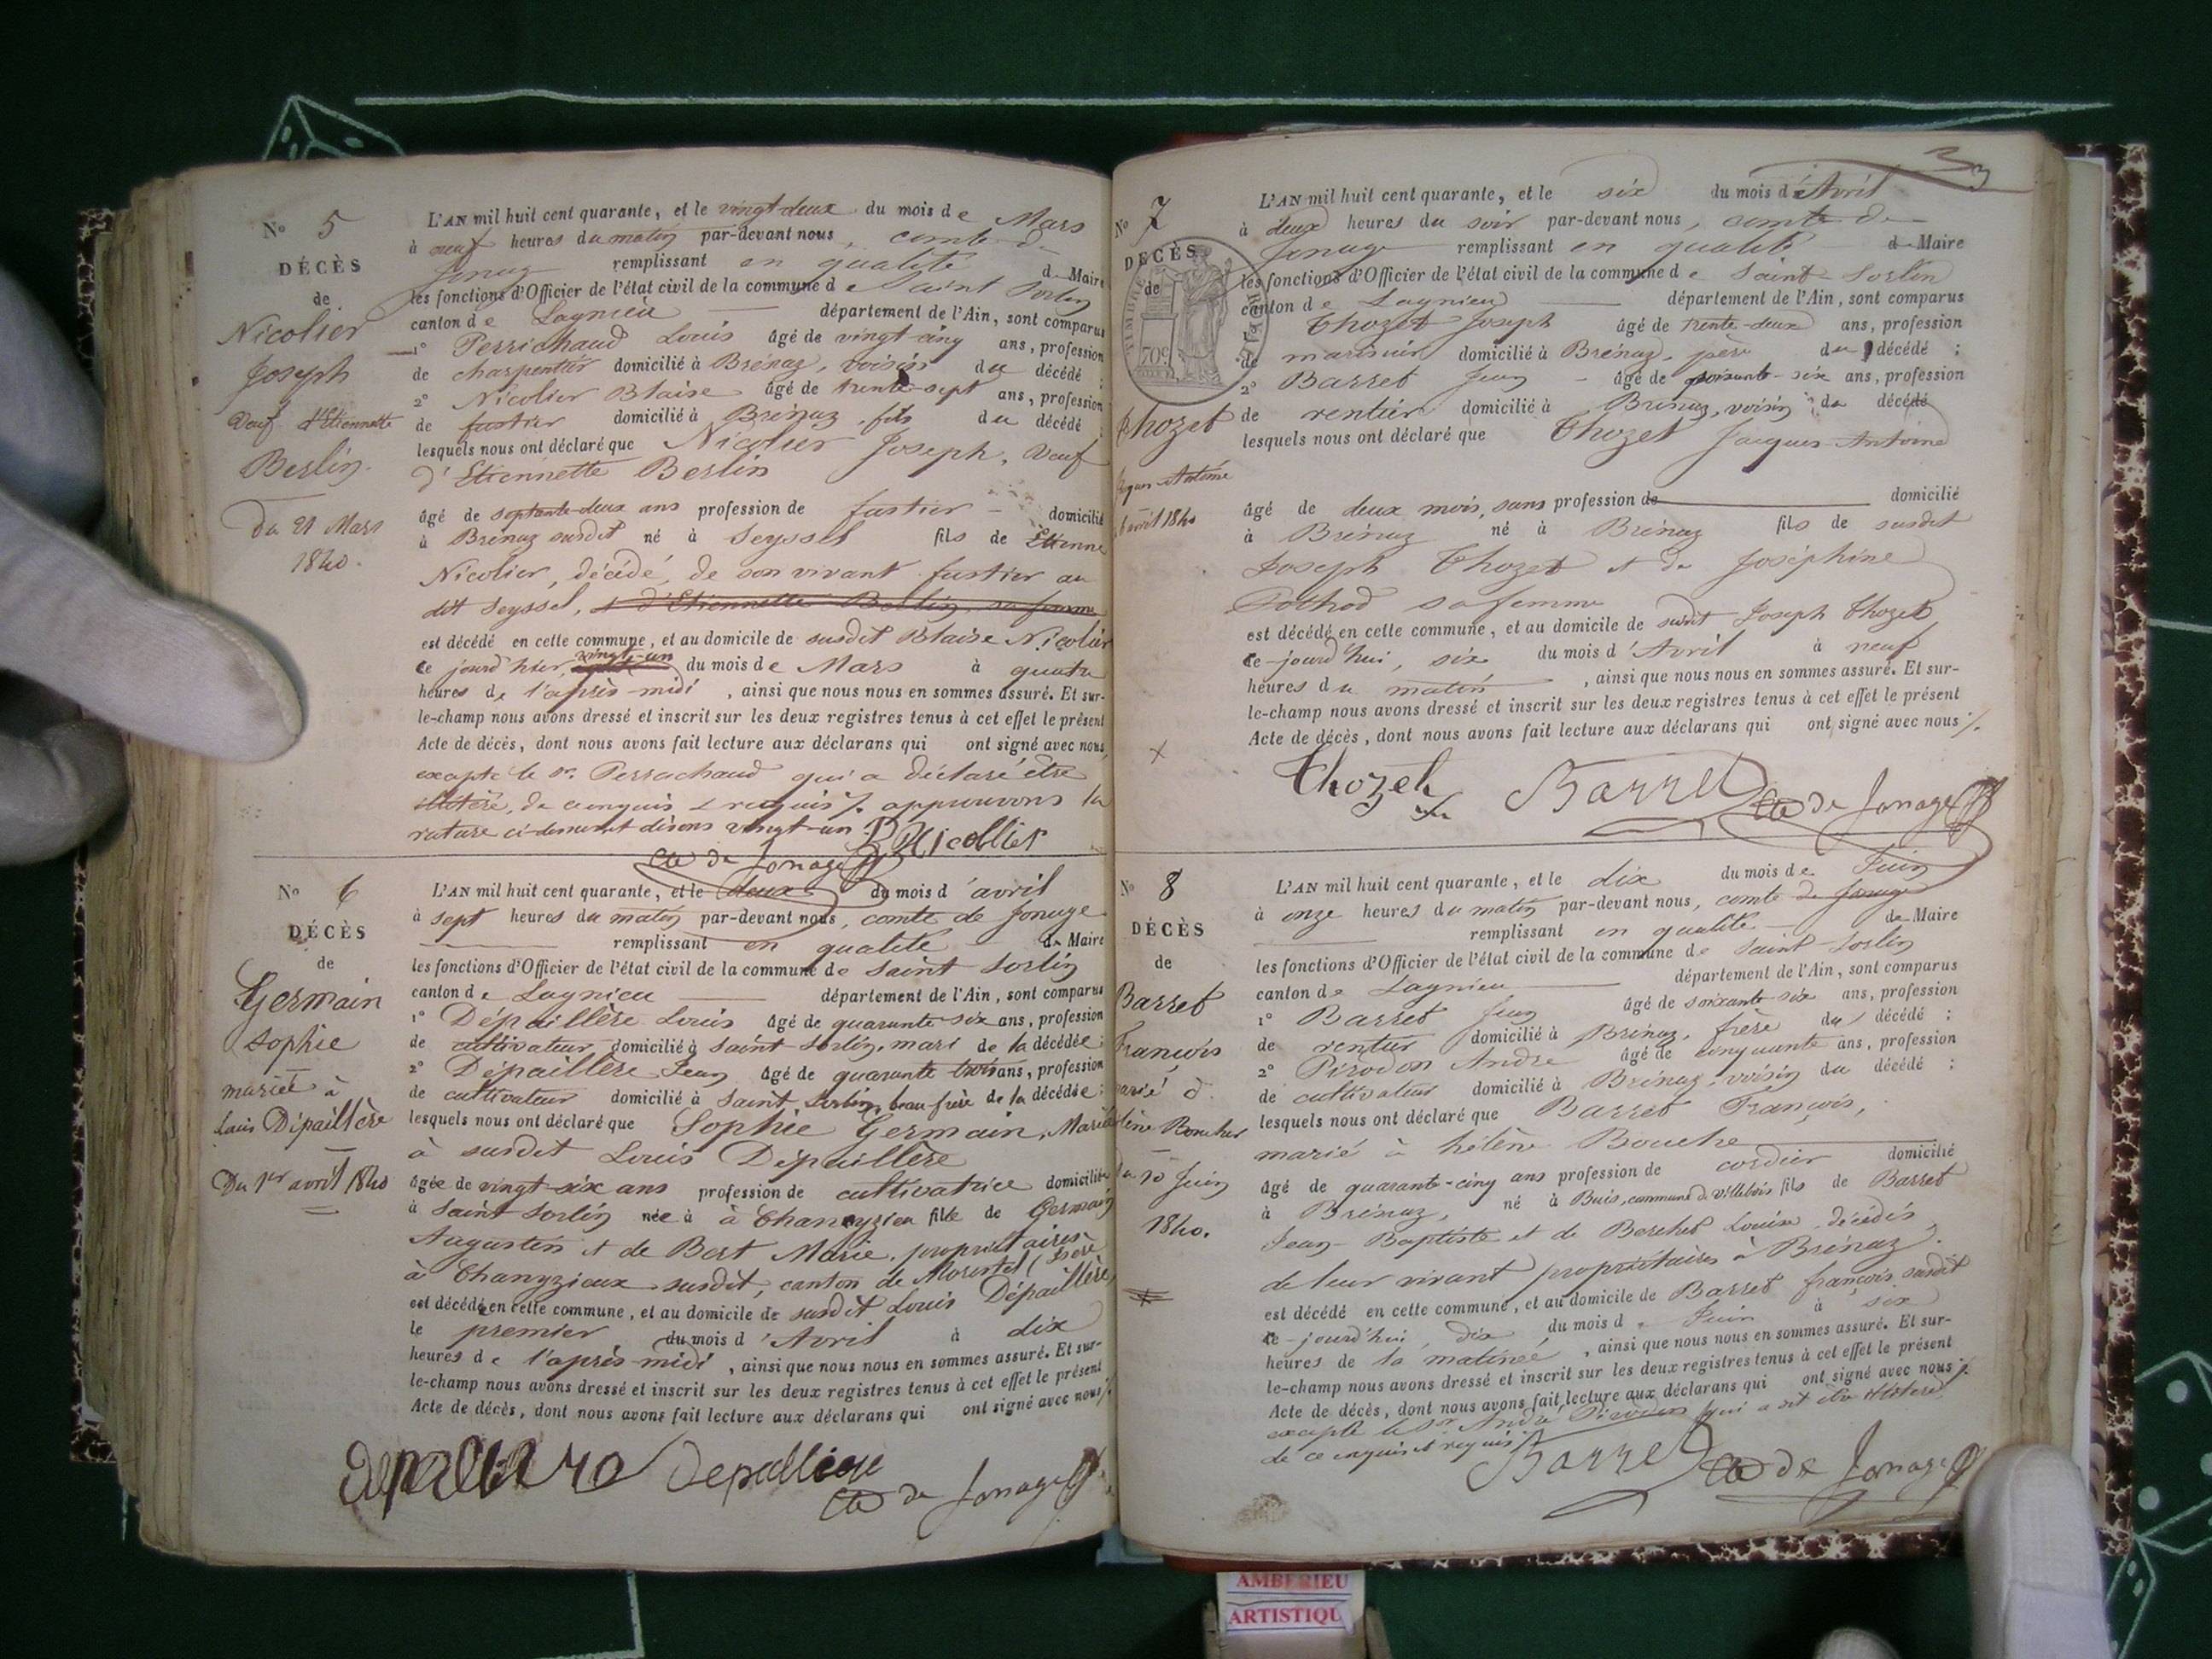 N° 5
DÉCÈS
de
Nicolier
Joseph
Veuf d'Etiennette
Berlin.
Du 21 Mars
1840.
L'AN mil huit cent quarante, et le vingt-deux du mois de Mars
à neuf heures du matin par-devant nous, comte de
Jonage remplissant en qualité de Maire
les fonctions d'Officier de l'état civil de la commune de Saint Sorlin
canton de Lagnieu département de l'Ain, sont comparus
1° Perrichaud Louis âgé de vingt-cinq ans, profession
de charpentier domicilié à Brénaz, voisin du décédé ;
2° Nicolier Blaise âgé de trente-sept ans, profession
de fustier domicilié à Brénaz, fils du décédé ;
lesquels nous ont déclaré que Nicolier Joseph, Veuf
d'Etiennette Berlin
âgé de septante-deux ans profession de fustier domicilié
à Brénaz susdit né à Seyssel fils de Etienne
Nicolier, décédé, de son vivant fustier au
dit Seyssel, et d'Etiennette Berlin, sa femme
est décédé en cette commune, et au domicile de susdit Blaise Nicolier
ce jourd'hier, vingt-un du mois de Mars à quatre
heures de l'après-midi, ainsi que nous nous en sommes assuré. Et sur-
le-champ nous avons dressé et inscrit sur les deux registres tenus à cet effet le présent
Acte de décès, dont nous avons fait lecture aux déclarans qui ont signé avec nous,
excepté le sr. Perrachaud qui a déclaré être
illitéré, de ce enquis et requis ./. approuvons la
rature ci-dessus et disons vingt-un.
B Nicollier
Cte de Jonage
N° 6
DÉCÈS
de
Germain
Sophie
mariée à
Louis Dépaillère
Du 1er avril 1840
L'AN mil huit cent quarante, et le deux du mois d'avril
à sept heures du matin par-devant nous, comte de Jonage
remplissant en qualité de Maire
les fonctions d'Officier de l'état civil de la commune de Saint Sorlin
canton de Lagnieu département de l'Ain, sont comparus
1° Dépaillère Louis âgé de quarante-six ans, profession
de cultivateur domicilié à Saint-Sorlin, mari de la décédée ;
2° Dépaillère Jean âgé de quarante-trois ans, profession
de cultivateur domicilié à Saint Sorlin, beau frère de la décédée ;
lesquels nous ont déclaré que Sophie Germain, Mariée
à susdit Louis Dépaillère
âgée de vingt-six ans profession de cultivatrice domiciliée
à Saint Sorlin née à à Chanyzieu fille de Germain
Augustin et de Bert Marie, propriétaires
à Chanyzieux susdit, canton de Morestel (Isère
est décédée en cette commune, et au domicile de susdit Louis Dépaillère,
le premier du mois d'Avril à dix
heures de l'après-midi, ainsi que nous nous en sommes assuré. Et sur-
le-champ nous avons dressé et inscrit sur les deux registres tenus à cet effet le présent
Acte de décès, dont nous avons fait lecture aux déclarans qui ont signé avec nous ./.
Depallière
Cte de Jonage
N° 7
DÉCÈS
de
TIMBRE
70c
Thozet
Jacques Antoine
6 avril 1840
L'AN mil huit cent quarante, et le six du mois d'Avril
à deux heures du soir par-devant nous, comte de
Jonage remplissant en qualité de Maire
les fonctions d'Officier de l'état civil de la commune de Saint-Sorlin
canton de Lagnieu département de l'Ain, sont comparus
1° Thozet Joseph âgé de trente-deux ans, profession
de marinier domicilié à Brénaz, père du décédé ;
2° Barret Jean âgé de soixante-six ans, profession
de rentier domicilié à Brénaz, voisin du décédé
lesquels nous ont déclaré que Thozet Jacques-Antoine
âgé de deux mois, sans profession de domicilié
à Brénaz né à Brénaz fils de susdit
Joseph Thozet et de Joséphine
Pothod sa femme
est décédé en cette commune, et au domicile de susdit Joseph Thozet
ce-jourd'hui, six du mois d'Avril à neuf
heures du matin, ainsi que nous nous en sommes assuré. Et sur-
le-champ nous avons dressé et inscrit sur les deux registres tenus à cet effet le présent
Acte de décès, dont nous avons fait lecture aux déclarans qui ont signé avec nous ./.
Thozet Barret Cte de Jonage
N° 8
DÉCÈS
de
Barret
François
marié à
Hélène Bouches
du 10 Juin
1840.
L'AN mil huit cent quarante, et le dix du mois de Juin
à onze heures du matin par-devant nous, comte de Jonage
remplissant en qualité de Maire
les fonctions d'Officier de l'état civil de la commune de Saint-Sorlin
canton de Lagnieu département de l'Ain, sont comparus
1° Barret Jean âgé de soixante-six ans, profession
de rentier domicilié à Brénaz, frère du décédé ;
2° Pirodon André âgé de cinquante ans, profession
de cultivateur domicilié à Brénaz, voisin du décédé ;
lesquels nous ont déclaré que Barret François,
marié à hélène Bouche
âgé de quarante-cinq ans profession de cordier domicilié
à Brénaz, né à Buis, commune de Villebois fils de Barret
Jean-Baptiste et de Berchet Louise, décédés,
de leur vivant propriétaires à Brénaz.
est décédé en cette commune, et au domicile de Barret françois susdit
ce-jourd'hui, dix du mois de Juin à six
heures de la matinée, ainsi que nous nous en sommes assuré. Et sur-
le-champ nous avons dressé et inscrit sur les deux registres tenus à cet effet le présent
Acte de décès, dont nous avons fait lecture aux déclarans qui ont signé avec nous ./.
excepté le Sr André Pirodon qui a dit être illitéré
de ce enquis et requis ./.
Barret Cte de Jonage
AMBERIEU
ARTISTIQU